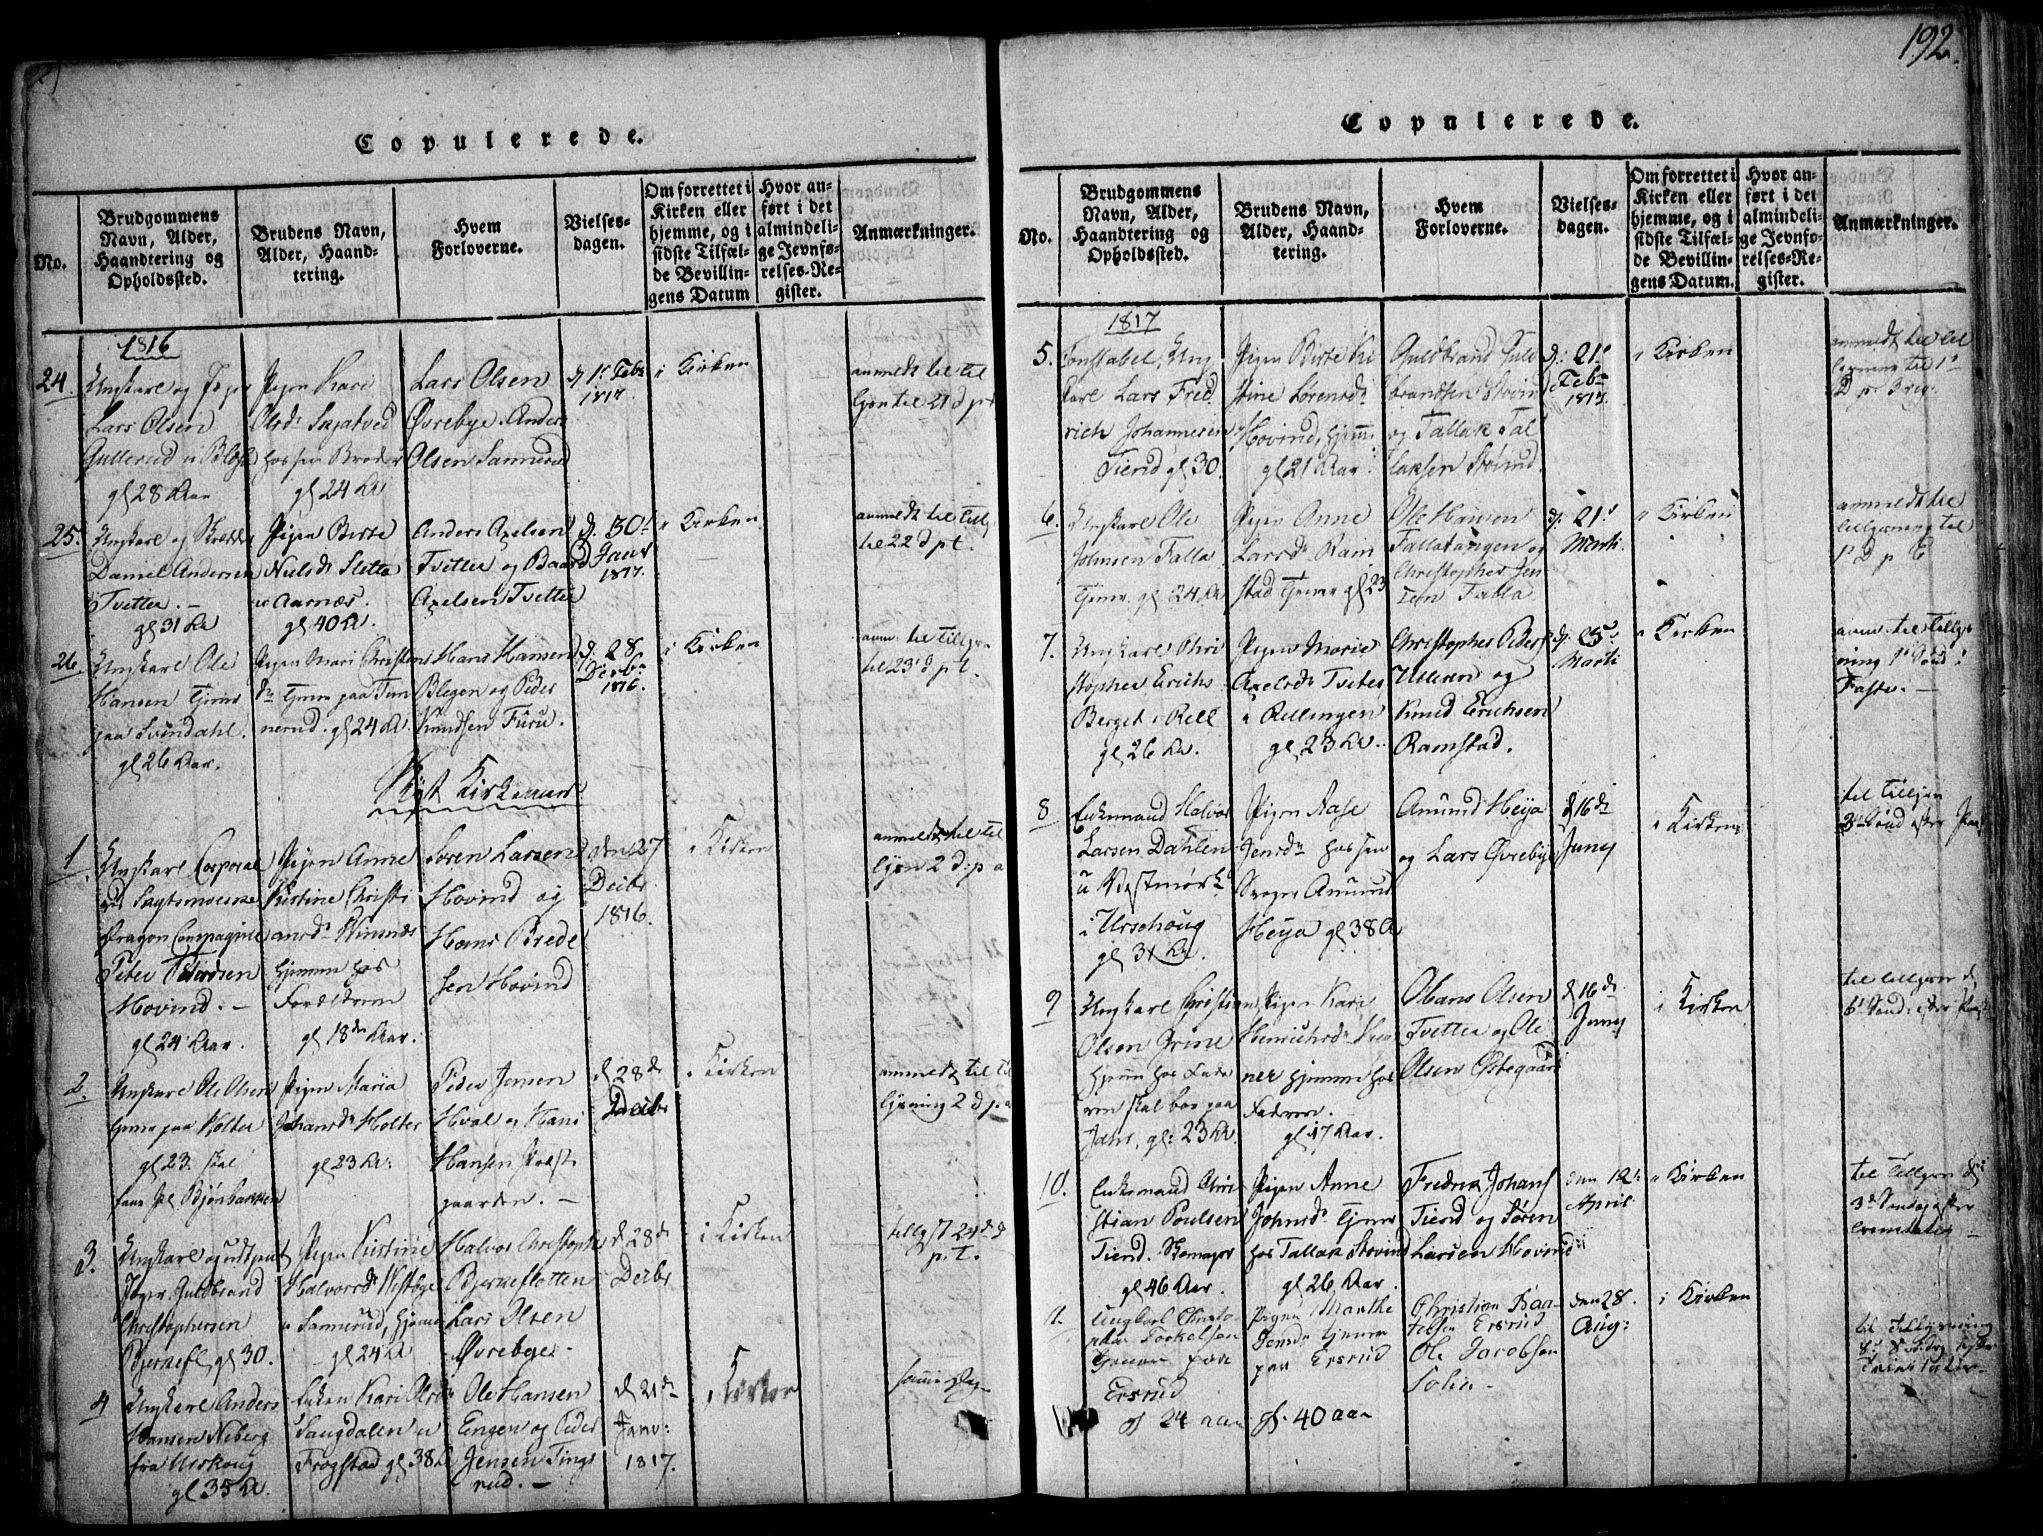 192.
Copulerede.
No.
Brudgommens
Navn, Alder,
Haandtering og
Opholdssted.
Brudens Navn,
Alder, Haand-
tering.
Hvem
Forloverne.
Vielses-
dagen.
Om forrettet i
Kirken eller
hjemme, og i
sidste Tilfæl-
de Bevillin-
gens Datum
Hvor an-
ført i det
almindeli-
ge Jevnfø-
relses-Re-
gister.
Anmærkninger.
1816
24.
Ungkarl og
Lars Olsen
Gullerud
gl 28 Aar
Pigen Kari
Olsdr
hos sin Broder
gl 24 Ar
Lars Olsen
Øvrebye. Anders
Olsen Sannerud
d 1s Febr
1817.
i Kirken
anmeldt til til
lysn til 21 d p t
25.
Ungkarl og
Daniel Andersen
Tvetter. –
gl 31 Ar
Pigen Birte
Nielsdr Sletta
u Aarnæs.
gl 40 Ar.
Anders Axelsen
Tvetter og Baard
Axelsen Tvetter
d. 30t
Janr
1817.
i Kirken
anmeldt til till
til 22 d p t.
26.
Ungkarl Ole
Hansen tjener
paa Svendahl.
gl 26 Aar.
Pigen Mari Christens
dr tjener paa
nerud. gl 24 Ar.
Hans Hansen
Blegen og Peder
Knudsen Furu.
d. 28
Decbr
1816.
i Kirken
anm. til tillys
til 23 d p t.
Kirke
1.
Ungkarl Corporal
ved
Dragon Compagnie
Peter Pedersen
Hovind. –
gl 24 Aar.
Pigen Anne
Kirstine Christi
ansdr
hjemme hos
Forældrene
gl 18 Aar.
Søren Larsen
Hovind og
Hans Peder
sen Hovind
den 27
Decbr
1816.
i Kirken
anmeldt til til
lysn 2 d p a
2.
Ungkarl Ole Olsen
tjener paa Holter
gl 23. skal
Pigen Maria
Johansdr Holter
gl 23 Ar:
Peder Jensen
Hval og Hans
Hansen Præst
gaarden. –
d 28de
Decbr
i Kirken
anmeldt til til
lysning 2 d p. a
3.
Ungkarl og udtient
Jæger Guldbrand
Christophersen
Bjerkefl. gl 30.
Pigen Kirstine
Halvorsdr
Sannerud, hjemme
gl 24 Ar
Halvor Christoph
Bjerkeflotten
Lars Olsen
Øvrebye –
d 28de
Decbr
i Kirken
tillyst 24de d
p. t.
4
Ungkarl Anders
Hansen Neberg
fra Urskoug
gl 35 Ar.
Enken Kari Olsdr
Saugdalen u
Frogstad gl 38
Ole Hansen
Engen og Peder
Jensen Tings
rud. –
d 21de
Janr:
1817.
i Kirken
samme Dag
Copulerede.
No.
Brudgommens
Navn, Alder,
Haandtering og
Opholdssted.
Brudens Navn,
Alder, Haand-
tering.
Hvem
Forloverne.
Vielses-
dagen.
Om forrettet i
Kirken eller
hjemme, og i
sidste Tilfæl-
de Bevillin-
gens Datum.
Hvor an-
ført i det
almindeli-
ge Jevnfø-
relses-Re-
gister.
Anmærkninger.
1817
5.
Constabel, Ung
karl Lars Fred
rich Johannesen
Tierud gl 30.
Pigen Birte Ki
stine Lorensdr
Hovind, hjemme
gl 21 Aar:
Guldbrand Guld
brandsen Stovind
og Tallak Tal
laksen Stovind.
d: 21s
Febr
1817.
i Kirken
anmeldt til til
lysning til 1s
D p
6.
Ungkarl Ole
Johnsen Falla
tjener. gl 24 Ar
Pigen Anne
Larsdr Ram
stad tjener gl 23
Ole Hansen
Fallatangen og
Christopher Jen
sen Falla
d. 21s
Marti.
i Kirken
anmeldt til
tillysning til
1s D p
7.
Ungkarl Chri
stopher Erichs
Berget i Rell
gl 26 Ar.
Pigen Marie
Axelsdr Tveter
i Rellingen
gl 23 Ar.
Christopher Peders
Ulleren og
Knud Erichsen
Ramstad.
d. 25
Marti
i Kirken
anm. til tillys
ning 1s Sønd i
Faste. –
8
Enkemand Halvor
Larsen Dahlen
u Vestmørk
i Urschoug
gl 31 Ar.
Pigen Aase
Jensdr hos sin
Svoger Amund
Heya gl 38 A
Amund Heya
og Lars Øvrebye
d 16de
Juny
i Kirken
til tillysn
3de Sønd efter Paas
9
Ungkarl Christian
Olsen Grine
hjemme hos Fade
ren skal boe paa
Jahr, gl: 23 Ar.
Pigen Kari
Henrichsdr
ner hjemme hos
Faderen.
gl 17 Aar.
Hans Olsen
Tvetter og Ole
Olsen Østegaard
d 16de
Juny
i Kirken
til tillysn d
6te Sønd. efter
10.
Enkemand Chri
stian Poulsen
Tierud. Skomager
gl 46 Aar.
Pigen Anne
Johnsdr tjener
hos Tallak Stovind
gl 26 Aar.
Fredrik Johans
Tierud og Søren
Larsen Hovind
den 12te
April
i Kirken
til tillysn d
3de Søndag efter
11.
Ungkarl Christo
pher Torkelsen
tjener paa
Ersrud
gl 24 aar
Pigen Marthe
Jensdr tjener
paa Ersrud
gl. 40 aar
Christian Baa-
telsen Ersrud
Ole Jacobsen
Solie –
den 28.
Aug:
i Kirken
til Tillysning
Trinitatis.